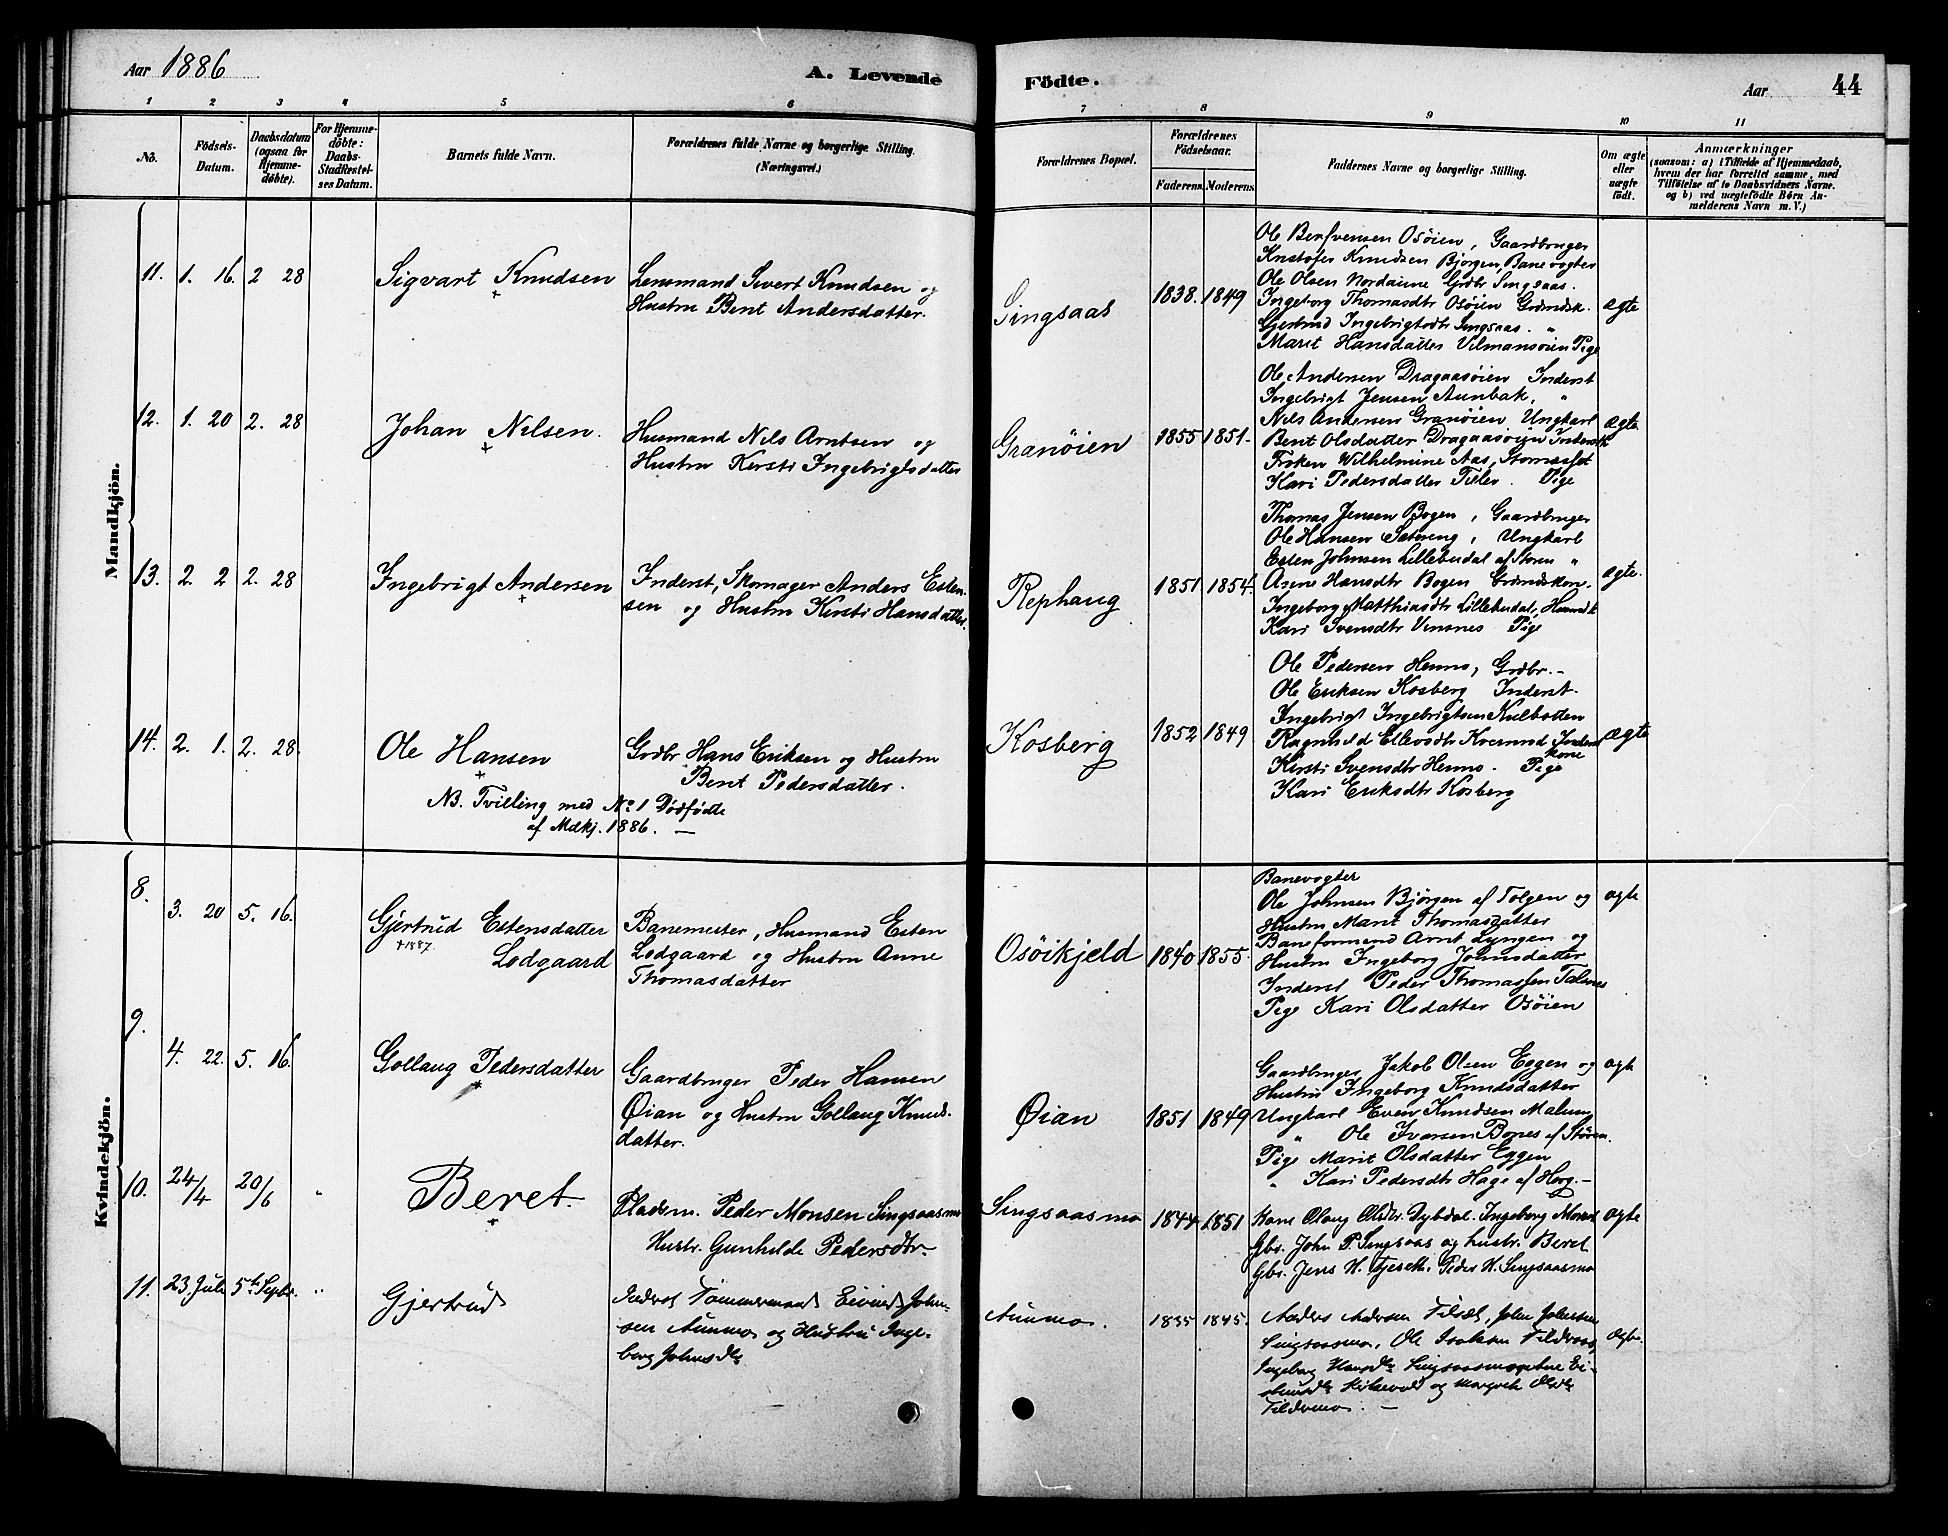 Aar 1886
A. Levende
Fødte.
Aar
44
1 2 3 4 5 6 7 8 9 10 11
No.
Fødsels-
Datum.
Daabsdatum
(ogsaa for
Hjemme-
døbte).
For Hjemme-
døbte:
Daabs-
Stadfæstel-
ses Datum.
Barnets fulde Navn.
Forældrenes fulde Navne og borgerlige Stilling.
(Næringsvei.)
Forældrenes Bopæl.
Forældrenes
Fødselsaar.
Faderens. Moderens.
Faddernes Navne og borgerlige Stilling.
Om ægte
eller
uægte
født.
Anmærkninger
(saasom: a) i Tilfælde af Hjemmedaab,
hvem der har forrettet samme, med
Tilføielse af to Daabsvidners Navne.
og b) ved uægtefødte Børn An-
melderens Navn m. V.)
Mandkjön.
11. 1. 16. 2 28
Sigvart Knudsen
Lensmand Sivert Knudsen og
Hustru Berit Andersdatter.
Singsaas
1838. 1849
Ole Osøien, Gaardbruger
Kristofer Knudsen Bjørgen, Banevogter
Ole Olsen Nordaune Grdbr Singsaas.
Ingeborg Thomasdtr Osøien Grdmdsk.
Gjertrud Ingebrigtsdtr Singsaas. "
Marit Hansdatter Vilmansøien Pige
ægte
12. 1. 20 2. 28
Johan Nilsen.
Husmand Nils Arntsen og
Hustru Kirsti Ingebrigtsdatter
Granøien
1855 1851.
Ole Andersen Dragaasøien Inderst
Ingebrigt Jensen Aunbak, "
Nils Andersen Granøien, Ungkarl
Berit Olsdatter Dragaasøien Inderstk
Frøken Wilhelmine Aas,
Kari Pedersdatter . Pige
ægte
13. 2. 2 2. 28
Ingebrigt Andersen
Inderst, Skomager Anders Esten-
sen og Hustru Kirsti Hansdatter.
Rephaug
1851 1854.
Thomas Jensen Bogen, Gaardbruger
Ole Hansen Ungkarl
Esten Johnsen Lillebudal af Støren "
Hansdtr Bogen Grdmdskone.
Ingeborg Matthiasdtr Lillebudal, Husmdk
Kari Svensdtr Vinsnes Pige
ægte.
14. 2. 1. 2. 28.
Ole Hansen
Grdbr Hans Eriksen og Hustru
Berit Pedersdatter.
NB. Tvilling med No. 1 Dødfødte
af Mdkj. 1886. —
Kosberg
1852 1849
Ole Pedersen Hermo, Grdbr.-
Ole Eriksen Kosberg Inderst.
Ingebrigt Ingebrigtsen
Ragnhild Ellevsdtr Kvernmd Inderst
kone
Kirsti Svensdtr Hermo. Pige
Kari Eriksdtr Kosberg
ægte
Kvindekjön.
8. 3. 20 5. 16.
Gjertrud Estensdatter
†1887.
Lodgaard
Banemester, Husmand Esten
Lodgaard og Hustru Anne
Thomasdatter
Osøikjeld
1840 1855.
Banevogter
Ole Johnsen Bjørgen af Tolgen og
Hustru Marit Thomasdatter
Baneformand Arnt Lyngen og
Hustru Ingeborg Johnsdatter
Inderst Peder Thomassen Talsnes
Pige Kari Olsdatter Osøien
ægte
9. 4. 22. 5. 16.
Gollaug Pedersdatter
Gaardbruger Peder Hansen
Øian og Hustru Gollaug Knuds-
datter.
Øian
1851 1849
Gaardbruger Jakob Olsen Eggen og
Hustru Ingeborg Knudsdatter
Ungkarl Even Knudsen Malum
" Ole Iversen Bones af Støren.
Pige Marit Olsdatter Eggen
" Kari Pedersdtr Hage af Horg.—
ægte
10. 24/4 20/6 "
Beret
Pladsm. Peder Monsen Singsaasmo
Hustr. Gunhilde Pedersdtr.
Singsaasmo
1844 1851
Kone Olaug Olsdr. Dybdal. Ingeborg Monsd
Gbr. John P. Singsaas og hustr. Beret
Gbr. Jens H. Fjeseth. Peder H. Singsaasmo
ægte
11. 23. Juli 5te Septbr. "
Gjertrud
Inderst Tømmermand Eivind John-
sen Aunmo og Hustru Inge-
borg Johnsdtr
Aunmo.
1835 1845.
Anders Andersen John Johnsen
Singsaasmo, Ole Isaksen
Ingeborg Hansdtr Singsaasmo
og Margrete Olsdtr
ægte.